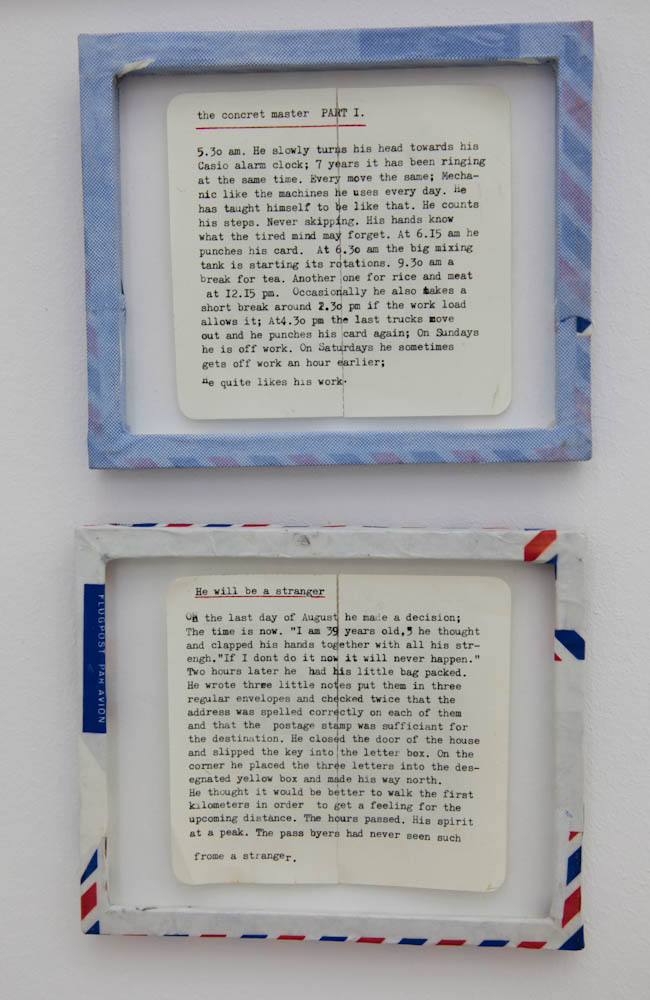 the concret master PART I.
5.30 am. He slowly turns his head towards his
Casio alarm clock; 7 years it has been ringing
at the same time. Every move the same; Mecha-
nic like the machines he uses every day. He
has taught himself to be like that. He counts
his steps. Never skipping. His hands know
what the tired mind may forget. At 6.15 am he
punches his card. At 6.30 am the big mixing
tank is starting its rotations. 9.30 am a
break for tea. Another one for rice and meat
at 12.15 pm. Occasionally he also takes a
short break around 2.30 pm if the work load
allows it; At4.30 pm the last trucks move
out and he punches his card again; On Sundays
he is off work. On Saturdays he sometimes
gets off work an hour earlier;
He quite likes his work.
He will be a stranger
On the last day of August he made a decision;
The time is now. "I am 39 years old,5 he thought
and clapped his hands together with all his str-
engh."If I dont do it now it will never happen."
Two hours later he had his little bag packed.
He wrote three little notes put them in three
regular envelopes and checked twice that the
address was spelled correctly on each of them
and that the postage stamp was sufficiant for
the destination. He closed the door of the house
and slipped the key into the letter box. On the
corner he placed the three letters into the des-
egnated yellow box and made his way north.
He thought it would be better to walk the first
kilometers in order to get a feeling for the
upcoming distance. The hours passed. His spirit
at a peak. The pass byers had never seen such
frome a stranger.
FLUGPOST PAR AVION